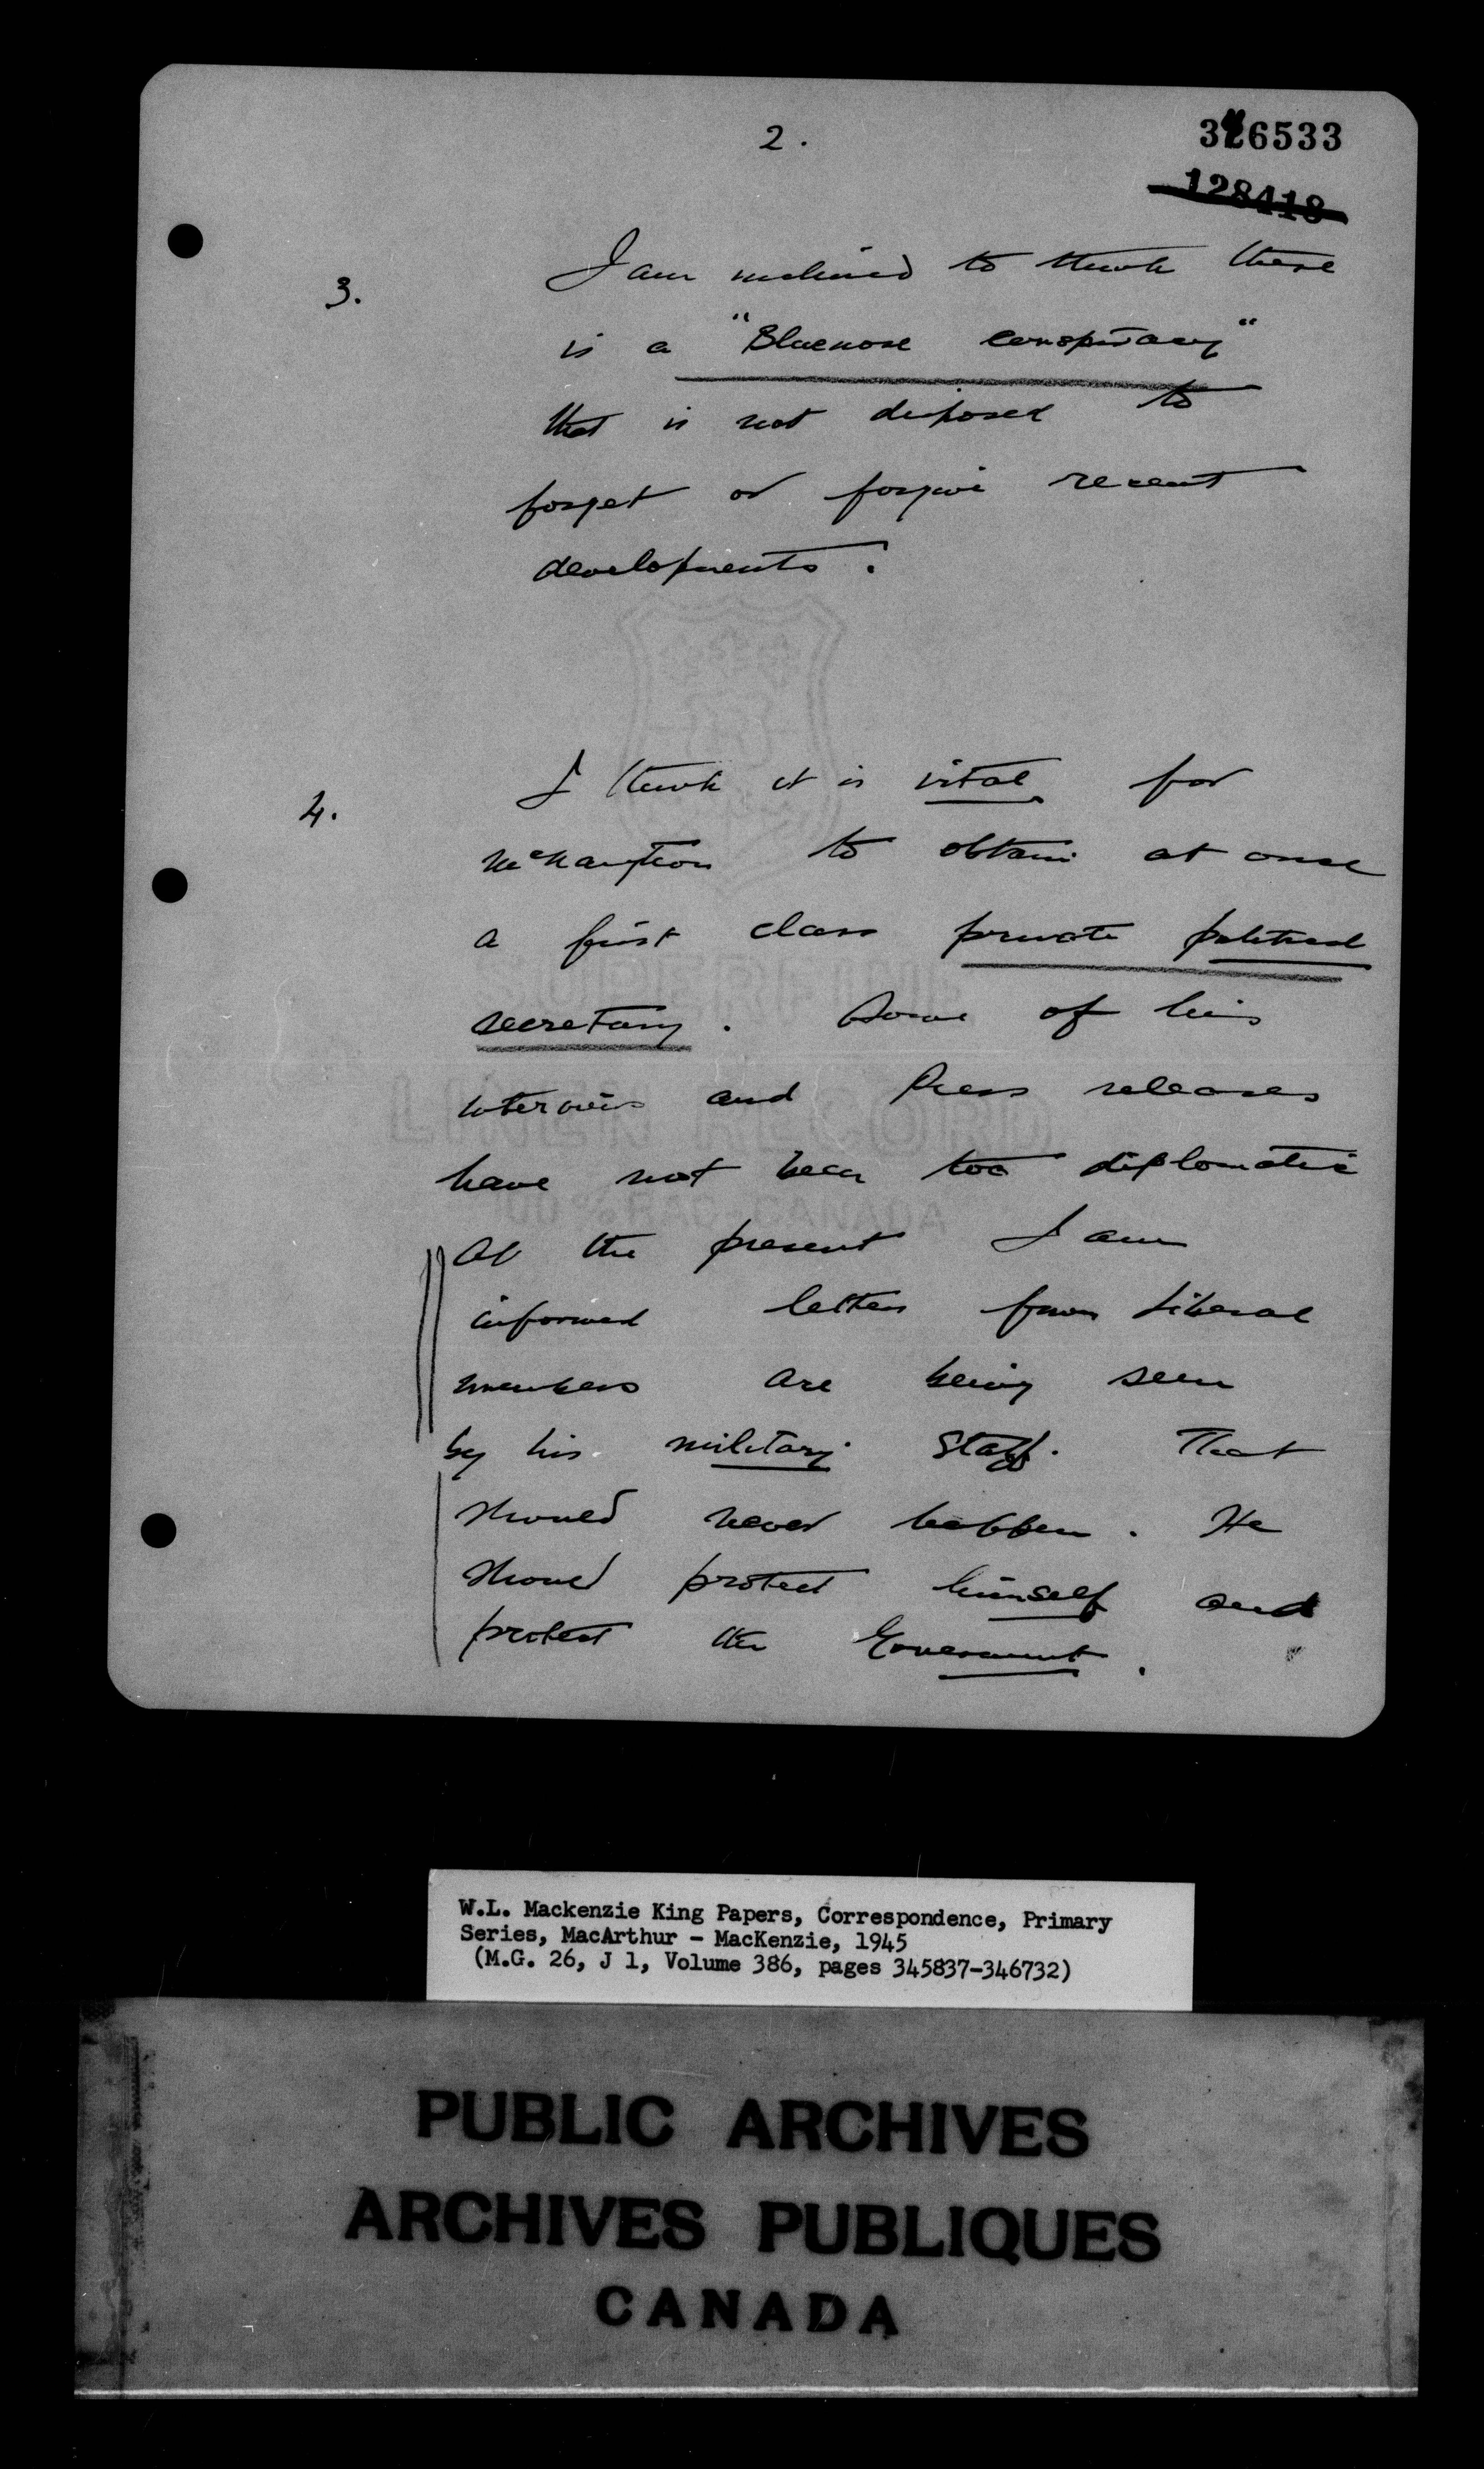 2.
346533
128418
3. I am inclined to think there
is a "Bluenose conspiracy"
that is not disposed to
forget or forgive recent
developments.
4. I think it is vital for
McNaughton to obtain at once
a first class private political
secretary. Some of his
interviews and Press releases
have not been too diplomatic
At the present I am
informed letters from Liberal
members are being seen
by his military staff. That
should never happen. He
should protect himself and
protect the Government.
SUPERFINE
LINEN RECORD
100% RAG-CANADA
W.L. Mackenzie King Papers, Correspondence, Primary
Series, MacArthur - MacKenzie, 1945
(M.G. 26, J 1, Volume 386, pages 345837-346732)
PUBLIC ARCHIVES
ARCHIVES PUBLIQUES
CANADA